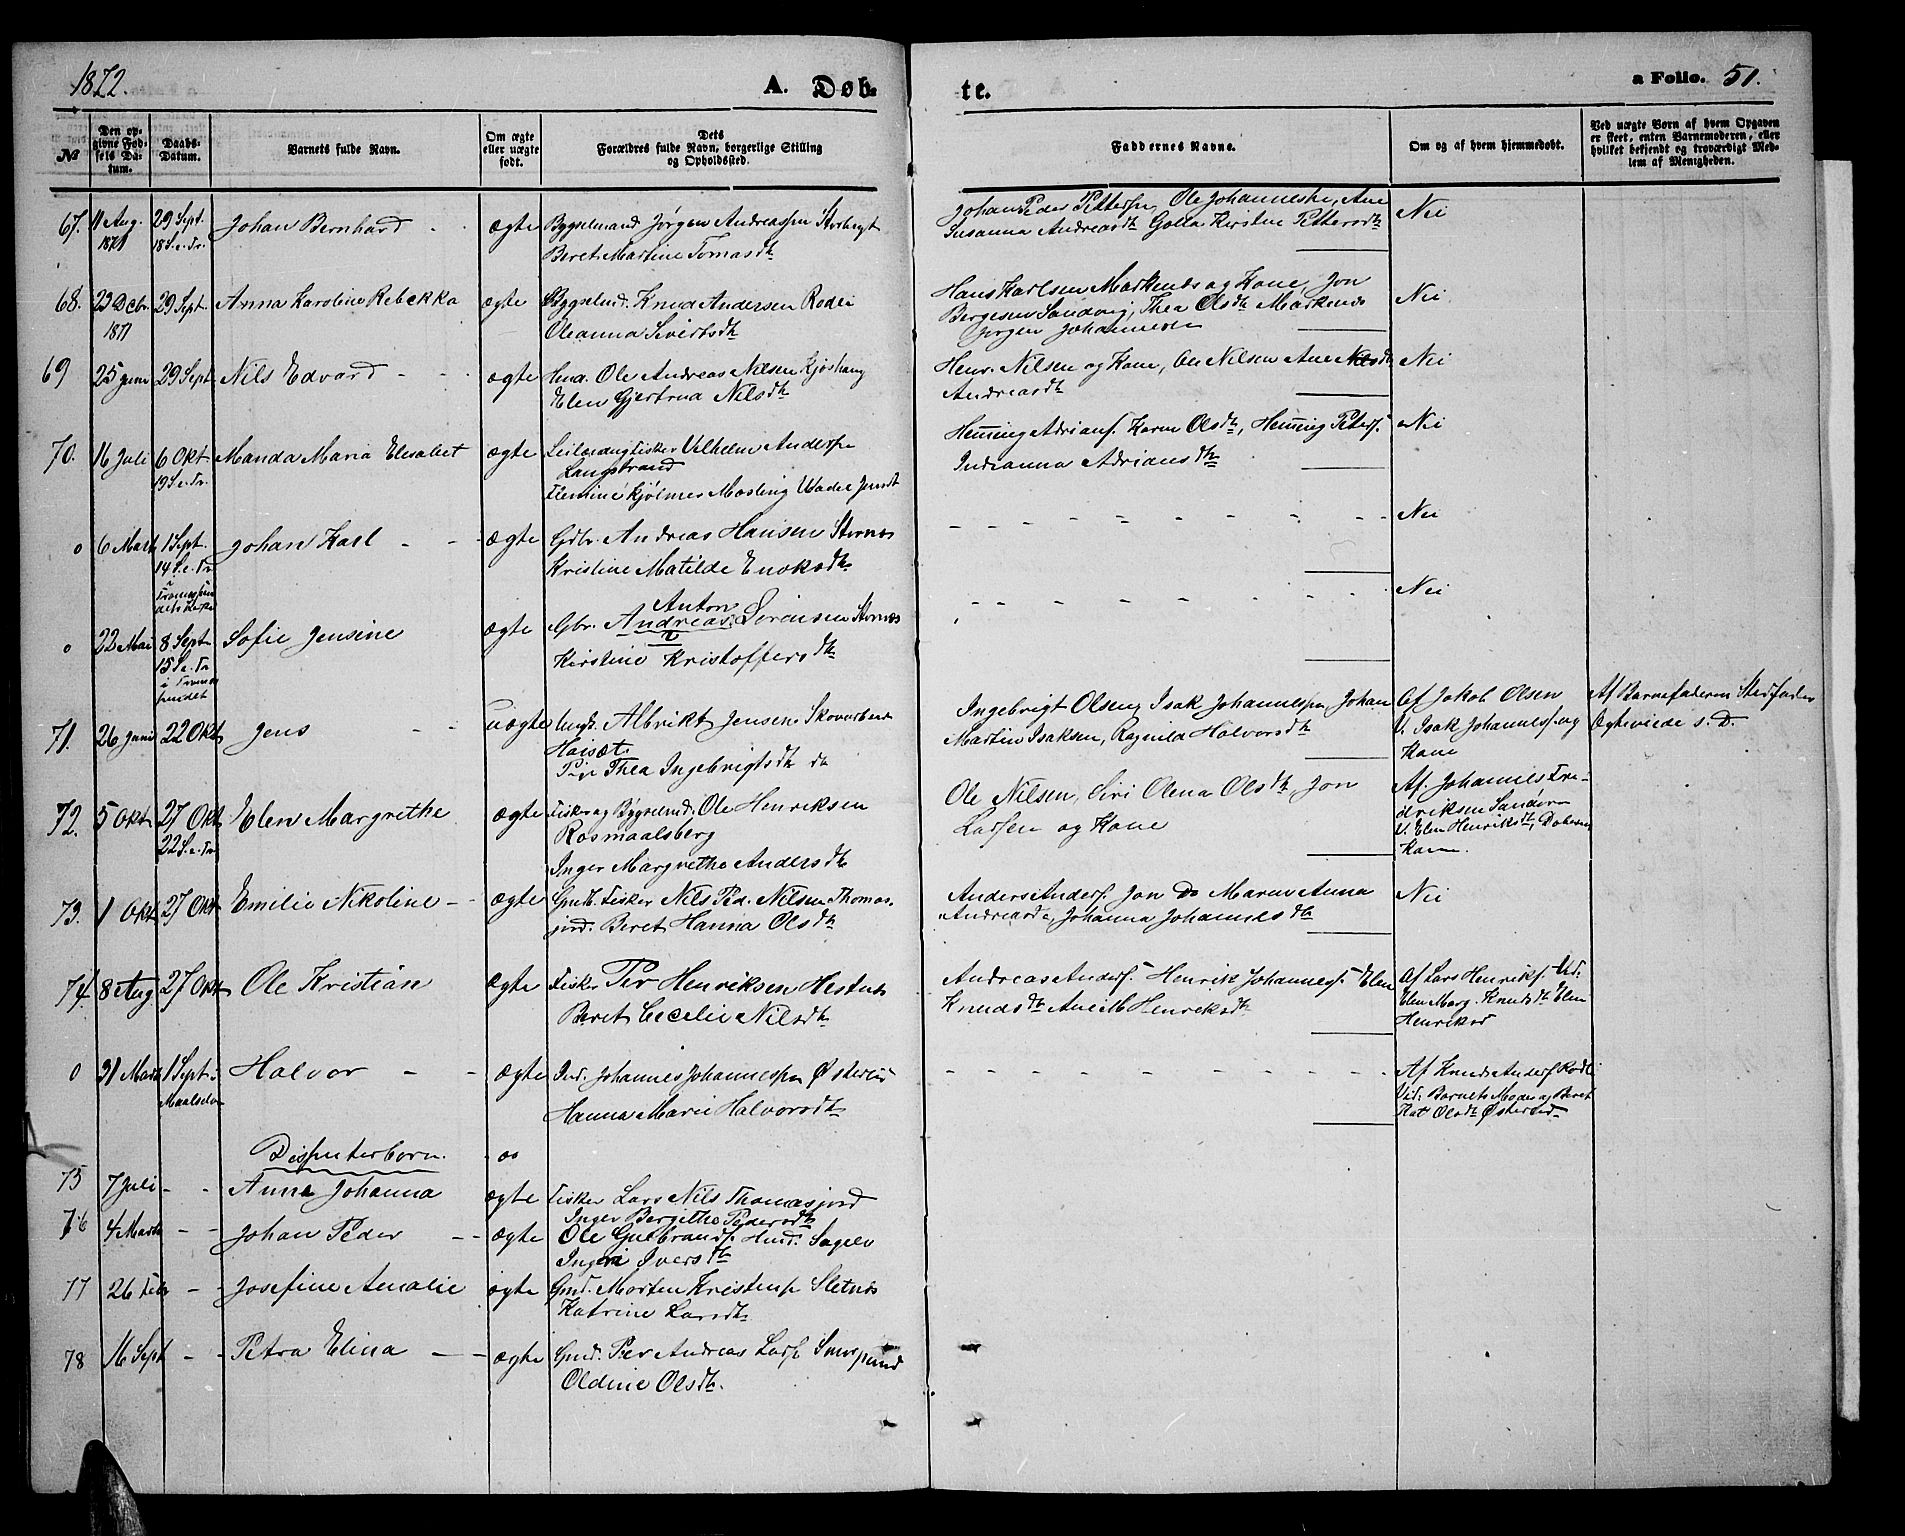 1872.
A. Døb-
te.
a Folio. 51.
№
Den op-
givne Fød-
sels Da-
tum.
Daabs-
Datum.
Barnets fulde Navn.
Om ægte
eller uægte
født.
Dets
Forældres fulde Navn, borgerlige Stilling
og Opholdssted.
Faddernes Navne.
Om og af hvem hjemmedøbt.
Ved uægte Børn af hvem Opgaven
er skeet, enten Barnemoderen, eller
hvilket bekjendt og troværdigt Med-
lem af Menigheden.
67. 11 Aug. 1871 29 Sept. 18 S. e. Tr. Johan Bernhard - - ægte Bygselmand Jørgen Andreassen
Beret Martine Tomasdtr
Johan Peder Pettersen, Ole Johannesen, Ane
Susanna Andreasdtr Kirstine Pettersdtr
Nei
68. 23 Decbr. 1871 29 Sept. Anna Karoline Rebekka ægte Bygselmd. Knud Andersen
Oleanna Sivertsdtr
Hans Karlsen Markenes og Kone, Jon
Bergesen Sandvig, Thea Olsdtr Markenes
Jørgen Johannesen
Nei
69 25 Juni 29 Sept. Nils Edvard - - ægte Hmd. Ole Andreas Nilsen
Elen Gjertrud Nilsdtr
Henr. Nilsen og Kone, Ole Nilsen Ane
Andreasdtr
Nei
70. 16 Juli 6 Okt 19 S. e. Tr. Manda Maria Elisabet ægte Leilændingfisker Vilhelm Anderse
Langstrand
Hening Adrians. Karen Olsdtr, Hening Peters.
Indianna Adriansdtr
Nei
0 6 Mart 1 Sept. 14 S. e. Tr. Johan Karl - - ægte Gdbr. Andreas Hansen Stornes
Kristine Matilde Enoksdtr
Nei
0 22 Mai 8 Sept 15 S. e. Tr. Sofie Jensine ægte Gbr. Andreas Anton Sørensen Stornes
Kirstine Kristoffersdtr
Nei
71. 26 Juni 22 Okt Jens - - uægte Ungk. Albrikt Jensen
Pige Thea Ingebrigtsdtr
Ingebrigt Olsen, Isak Johannessen, Johan
Martin Isaksen, Ragnilda Halvorsdtr
Af Jakob Olsen
V. Isak Johanness. og
Kone
Af Barnefaderen Stedfader
Ægteviede s. D.
72. 5 Okt 27 Okt 22 S. e. Tr. Elen Margrethe ægte Fisker og Bygselmd. Ole Henriksen
Rosmaalsberg
Inger Margrethe Andersdtr
Ole Nilsen, Siri Olena Olsdtr, Jon
Larsen og Kone
Af Johannes Fre-
driksen Sandøren
V. Elen Henriksdtr,
Kone.
73. 1 Okt 27 Okt Emilie Nikoline - ægte Fisker Nils Ped. Nilsen Thomas-
jord. Beret Hanna Olsdtr
Anders Anders. Jon Do Maren Anna
Andreasd., Johanna Johannesdtr
Nei
74. 8 Aug. 27 Okt Ole Kristian ægte Fisker Per Henriksen Hestnes
Beret Cecelie Nilsdtr
Andreas Anders. Henrik Johanness. Elen
Knudsdtr Ane M Henriksdtr
Af Lars Henriks. Vid.
Elen Marg. Knudsdtr Elen
Henriksd
0 31 Marts 1 Sept i Maalselven Halvor - - ægte Ind. Johannes Johannessen
Hanna Marie Halvorsdtr
Af Knud Anders.
Vid. Barnets Moder og Beret
Kat. Olsdtr
Dissenterbørn.
75 7 Juli - - Anna Johanna ægte Fisker Lars Nils. Thomasjord
Inger Bergithe Pedersdtr
76 4 Marts - - Johan Peder - - ægte Ole Gulbrands. Hmd. Sagelv
Ingeri Iversdtr
77 26 Feb - - Josefine Amalie ægte Gmd. Morten Kristens. Sletnes
Katrine Larsdtr
78 16 Sept - - Petra Elina - - ægte Gmd. Per Andreas Lars.
Oldine Olsdtr.